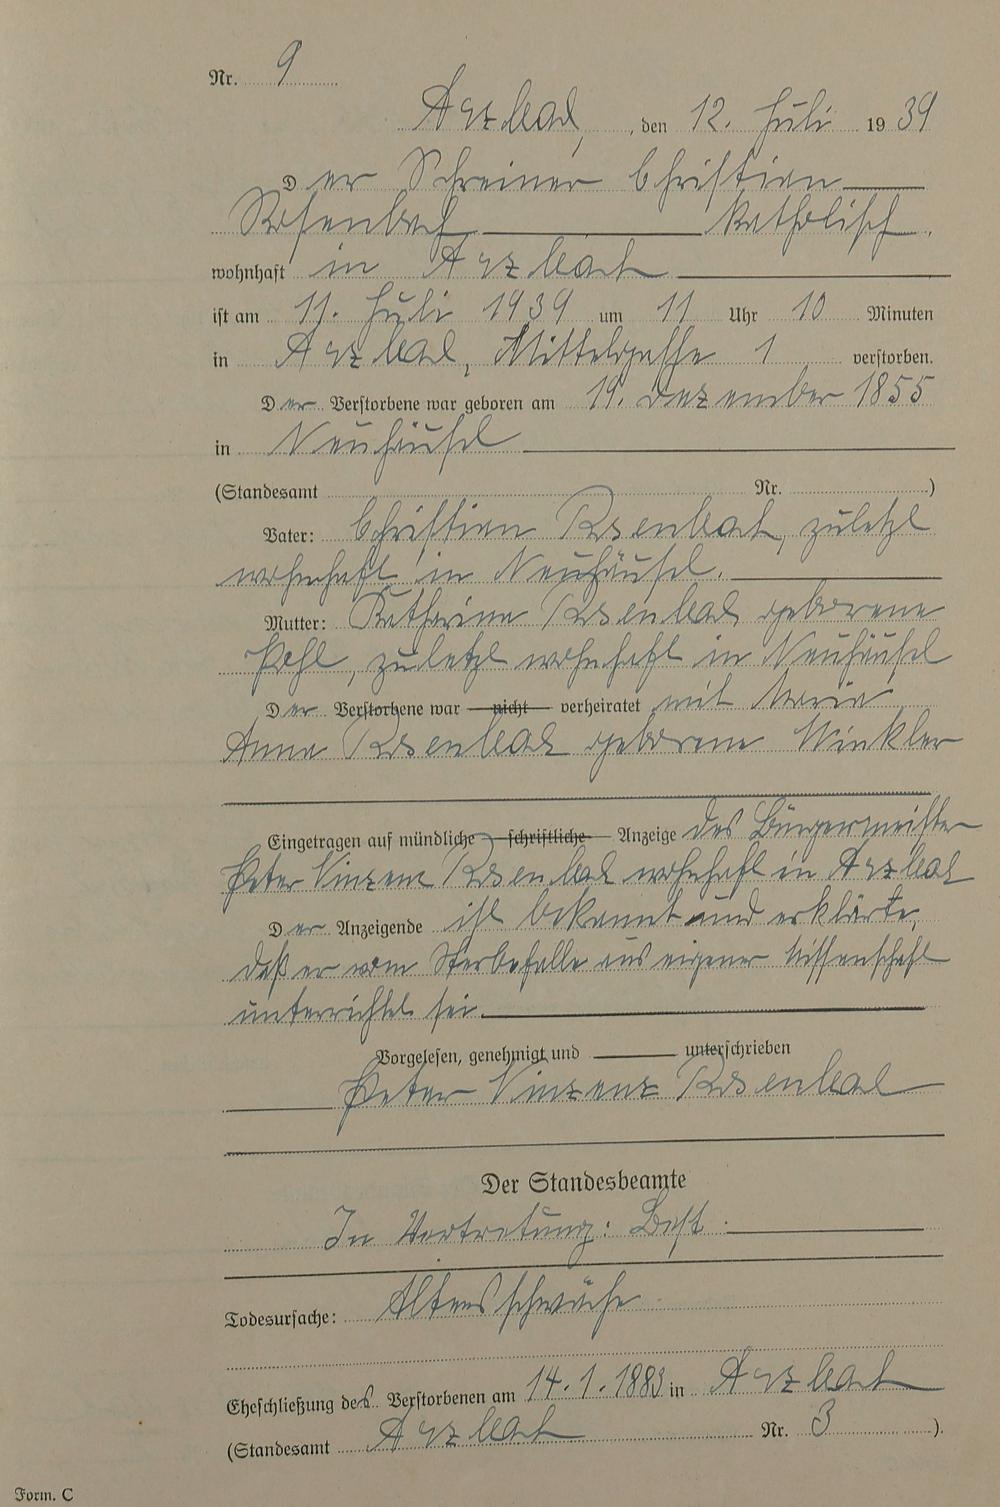 Nr. 9
Arzbach, den 12. Juli 1939
Der Schreiner Christian
Rosenbach katholisch
wohnhaft in Arzbach
ist am 11. Juli 1939 um 11 Uhr 10 Minuten
in Arzbach, Mittelgasse 1 verstorben.
Der Verstorbene war geboren am 19. Dezember 1855
in Neuhäusel
(Standesamt Nr. )
Vater: Christian Rosenbach, zuletzt
wohnhaft in Neuhäusel.
Mutter: Katharina Rosenbach geborene
Pohl, zuletzt wohnhaft in Neuhäusel
Der Verstorbene war nicht verheiratet mit Maria
Anna Rosenbach geborene Winkler
Eingetragen auf mündliche schriftliche Anzeige des Bürgermeister
Peter Vinzenz Rosenbach wohnhaft in Arzbach
Der Anzeigende ist bekannt und erklärte,
daß er vom Sterbefalle aus eigener Wissenschaft
unterrichtet sei.
Vorgelesen, genehmigt und unterschrieben
Peter Vinzenz Rosenbach
Der Standesbeamte
In Vertretung: Best
Todesursache: Altersschwäche
Eheschließung des Verstorbenen am 14.1.1883 in Arzbach
(Standesamt Arzbach Nr. 3 ).
Form. C